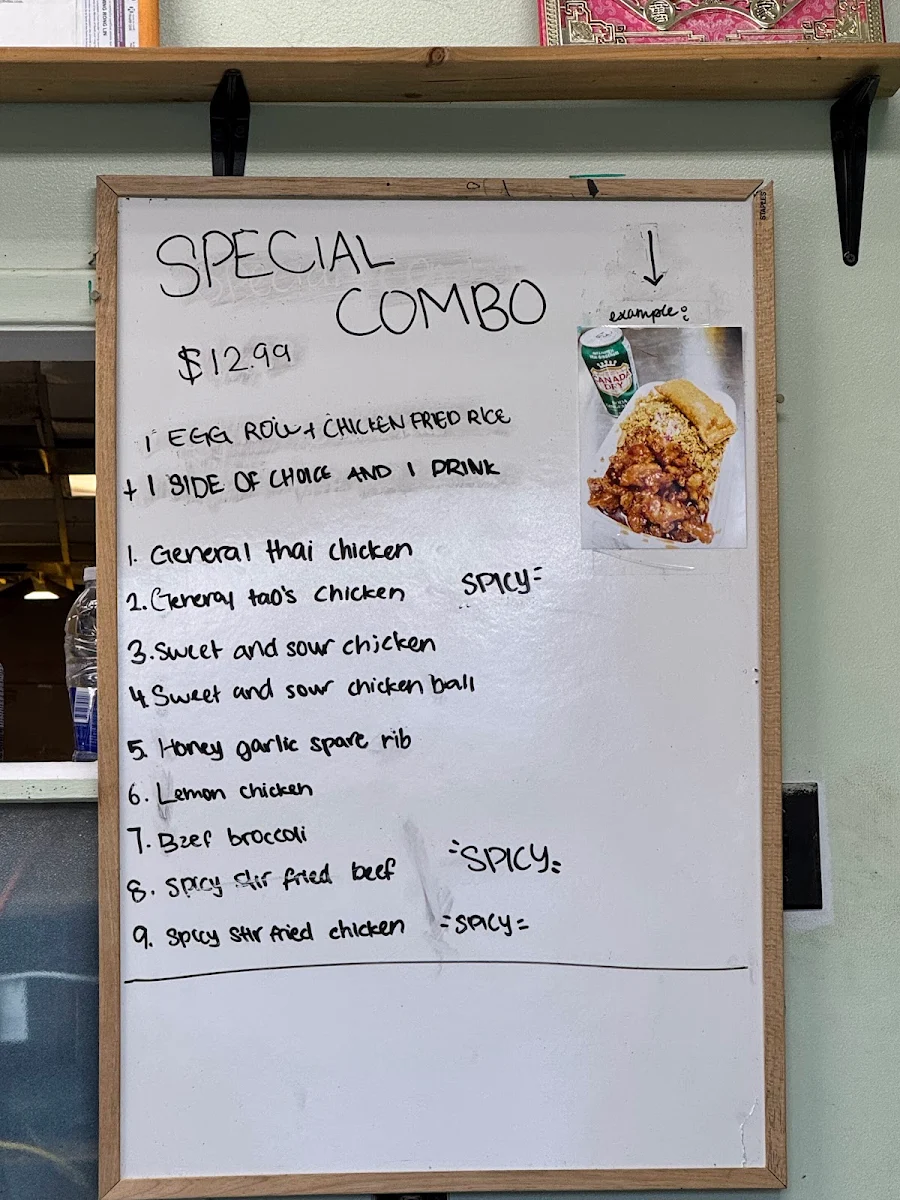 SPECIAL
COMBO
$12.99
1 EGG ROLL + CHICKEN FRIED RICE
+ 1 SIDE OF CHOICE AND 1 DRINK
example:
CANADA
DRY
1. General thai chicken
2. General tao's chicken SPICY
3. Sweet and sour chicken
4. Sweet and sour chicken ball
5. Honey garlic spare rib
6. Lemon chicken
7. Beef broccoli
8. Spicy stir fried beef =SPICY=
9. Spicy stir fried chicken =SPICY=
STAPLES